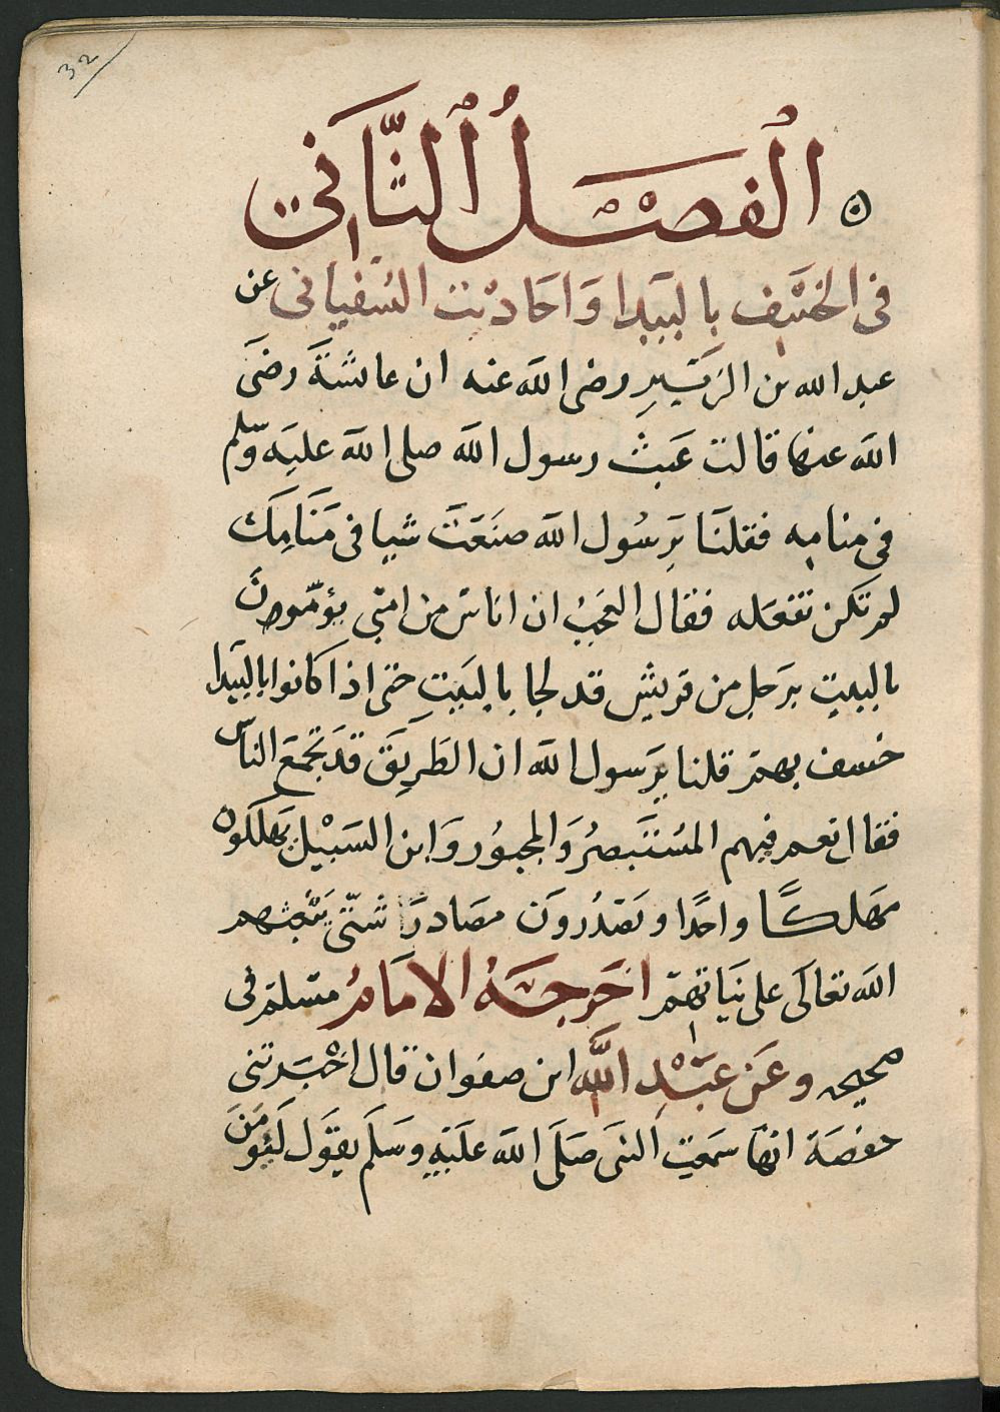 32
الفصل الثاني
في الخسف بالبيدا واحاديث السفياني عن
عبد الله بن الزبير رضى الله عنه ان عائشة رضى
الله عنها قالت عبث رسول الله صلى الله عليه وسلم
في منامه فقلنا يرسول الله صنعت شيا في منامك
لم تكن تفعله فقال العجب ان اناس من امتي يؤمون
بالبيت برجل من قريش قد لجا بالبيت حتى اذا كانوا بالبيدا
خسف بهم قلنا يرسول الله ان الطريق قد تجمع الناس
فقال نعم فيهم المستبصر والمجبور وابن السبيل يهلكون
مهلكا واحدا ويصدرون مصادرا شتى يبعثهم
الله تعالى على نياتهم اخرجه الامام مسلم في
صحيحه وعن عبد الله ابن صفوان قال اخبرتني
حفصة انها سمعت النبى صلى الله عليه وسلم يقول ليؤمن